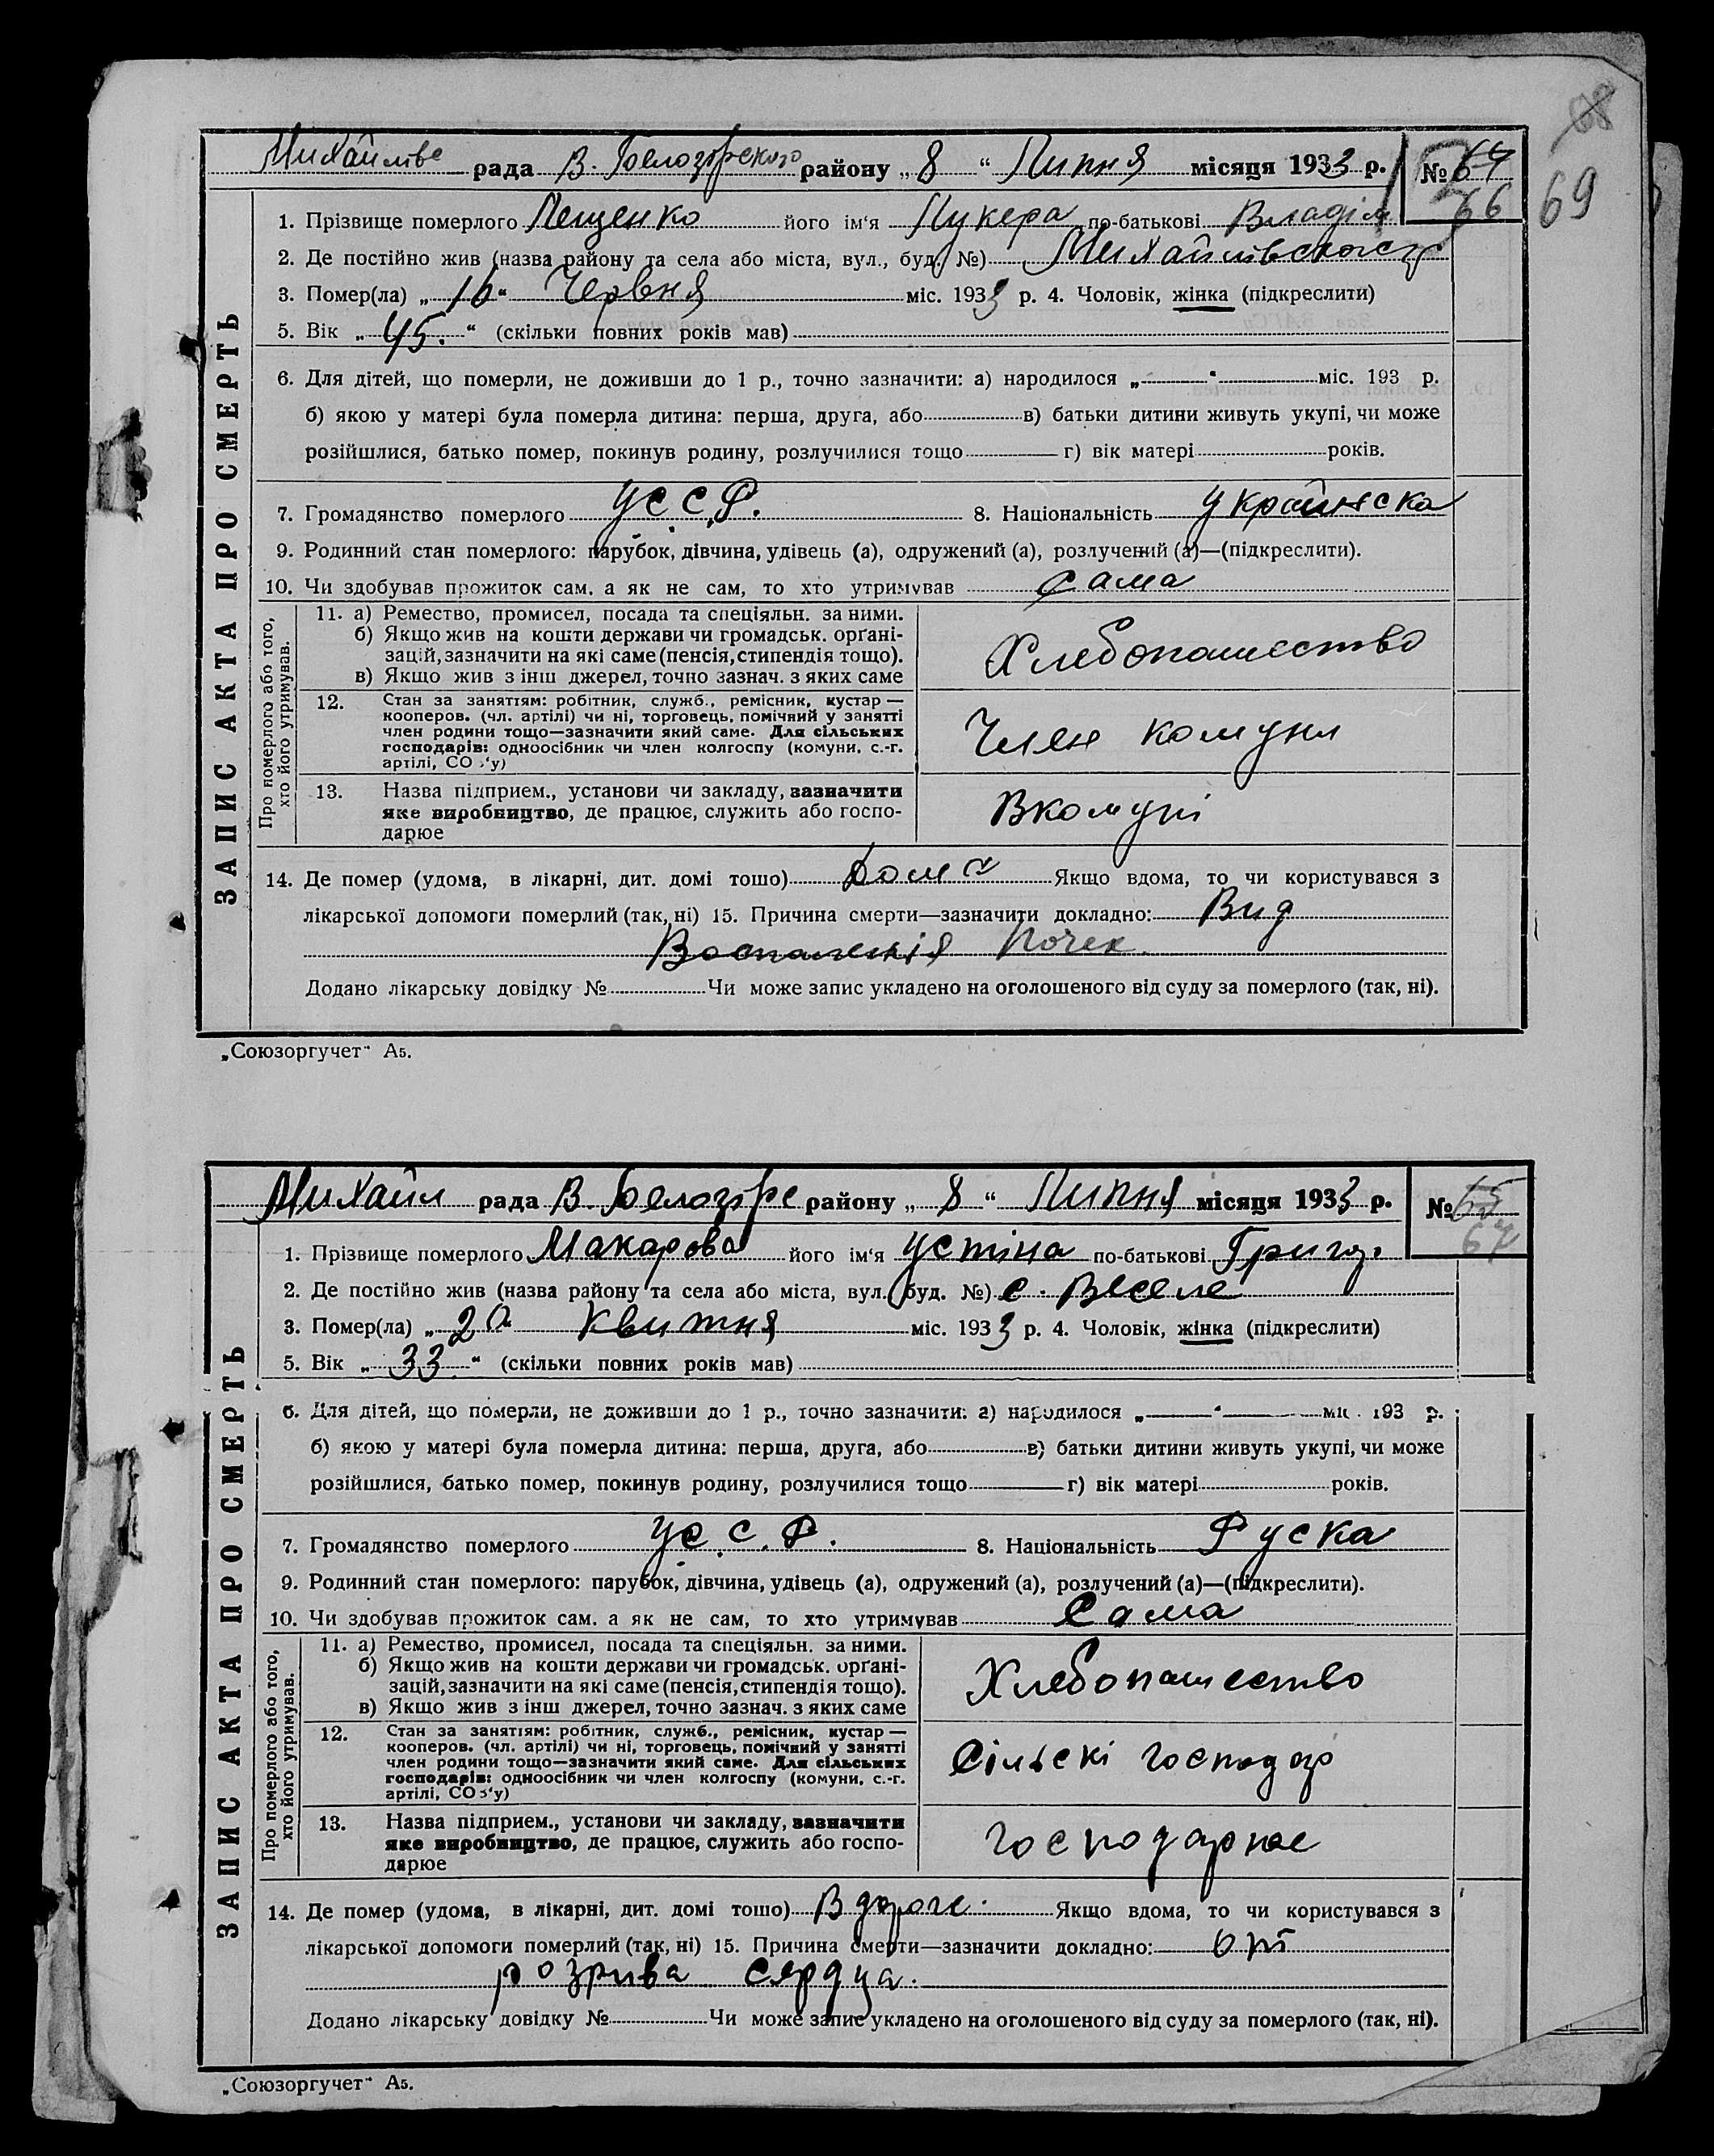 68
69
Михайлівс рада В. Белозірского району „ 8 “ Липня місяця 1933 р. № 64
66
1. Прізвище померлого Лещенко його ім‘я Лукера по-батькові Владім
2. Де постійно жив (назва району та села або міста, вул., буд. №)
3. Помер(ла) „ 16 “ Червня міс. 1933 р. 4. Чоловік, жінка (підкреслити)
5. Вік „ 45. “ (скільки повних років мав)
6. Для дітей, що померли, не доживши до 1 р., точно зазначити: а) народилося „ “ міс. 193 р.
б) якою у матері була померла дитина: перша, друга, або в) батьки дитини живуть укупі, чи може
розійшлися, батько помер, покинув родину, розлучилися тощо г) вік матері років.
7. Громадянство померлого УС.С.Р. 8. Національність Украинска
9. Родинний стан померлого: парубок, дівчина, удівець (а), одружений (а), розлучений (а)—(підкреслити).
10. Чи здобував прожиток сам, а як не сам, то хто утримував сама
ЗАПИС АКТА ПРО СМЕРТЬ
Про померлого або того, хто його утримував.
11. а) Ремество, промисел, посада та спеціяльн. за ними.
б) Якщо жив на кошти держави чи громадськ. орґані-
зацій, зазначити на які саме (пенсія, стипендія тощо).
в) Якщо жив з інш джерел, точно зазнач. з яких саме
Хлебопашество
12. Стан за заняттям: робітник, служб., ремісник, кустар —
кооперов. (чл. артілі) чи ні, торговець, помічний у занятті
член родини тощо—зазначити який саме. Для сільських
господарів: одноосібник чи член колгоспу (комуни, с.-г.
артілі, СОЗ‘у)
Член комуни
13. Назва підприєм., установи чи закладу, зазначити
яке виробництво, де працює, служить або госпо-
дарює
Вкомуні
14. Де помер (удома, в лікарні, дит. домі тощо) Дома Якщо вдома, то чи користувався з
лікарської допомоги померлий (так, ні) 15. Причина смерти—зазначити докладно: Вид
Воспаленія Почек.
Додано лікарську довідку № Чи може запис укладено на оголошеного від суду за померлого (так, ні).
„Союзоргучет“ А5.
Михайл рада В. Белозірс району „ 8 “ Липня місяця 1933 р. № 65
67
1. Прізвище померлого Макарова його ім‘я Устіна по-батькові Григор.
2. Де постійно жив (назва району та села або міста, вул. буд. №) с. Веселе
3. Помер(ла) „ 20 “ Квитня міс. 1933 р. 4. Чоловік, жінка (підкреслити)
5. Вік „ 33 “ (скільки повних років мав)
6. Для дітей, що померли, не доживши до 1 р., точно зазначити: а) народилося „ “ міс. 193 р.
б) якою у матері була померла дитина: перша, друга, або в) батьки дитини живуть укупі, чи може
розійшлися, батько помер, покинув родину, розлучилися тощо г) вік матері років.
7. Громадянство померлого УС.С.Р. 8. Національність Руска
9. Родинний стан померлого: парубок, дівчина, удівець (а), одружений (а), розлучений (а)—(підкреслити).
10. Чи здобував прожиток сам, а як не сам, то хто утримував Сама
ЗАПИС АКТА ПРО СМЕРТЬ
Про померлого або того, хто його утримував.
11. а) Ремество, промисел, посада та спеціяльн. за ними.
б) Якщо жив на кошти держави чи громадськ. орґані-
зацій, зазначити на які саме (пенсія, стипендія тощо).
в) Якщо жив з інш джерел, точно зазнач. з яких саме
Хлебопашество
12. Стан за заняттям: робітник, служб., ремісник, кустар —
кооперов. (чл. артілі) чи ні, торговець, помічний у занятті
член родини тощо—зазначити який саме. Для сільських
господарів: одноосібник чи член колгоспу (комуни, с.-г.
артілі, СОЗ‘у)
Сільскі господар
13. Назва підприєм., установи чи закладу, зазначити
яке виробництво, де працює, служить або госпо-
дарює
господарює
14. Де помер (удома, в лікарні, дит. домі тошо) В дороге. Якщо вдома, то чи користувався з
лікарської допомоги померлий (так, ні) 15. Причина смерти—зазначити докладно: от
розрива сярдца.
Додано лікарську довідку № Чи може запис укладено на оголошеного від суду за померлого (так, ні).
„Союзоргучет“ А5.